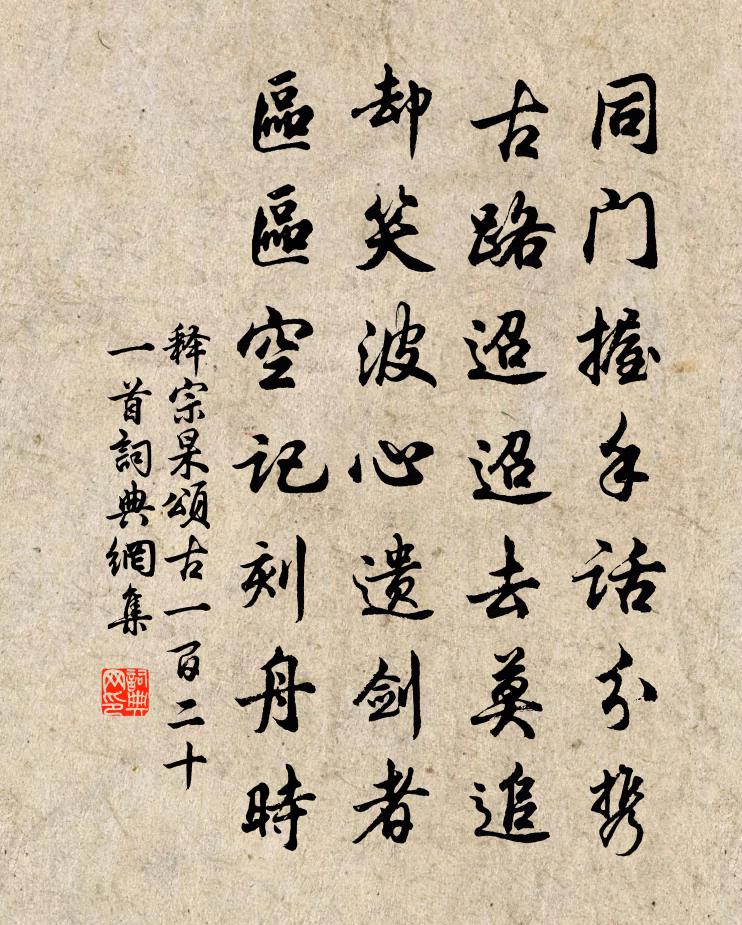 同门握手话分携
古路迢迢去莫追
却笑波心遗剑者
區區空记刻舟時
释宗杲頌古一百二十
一首詞典網集
詞典网印